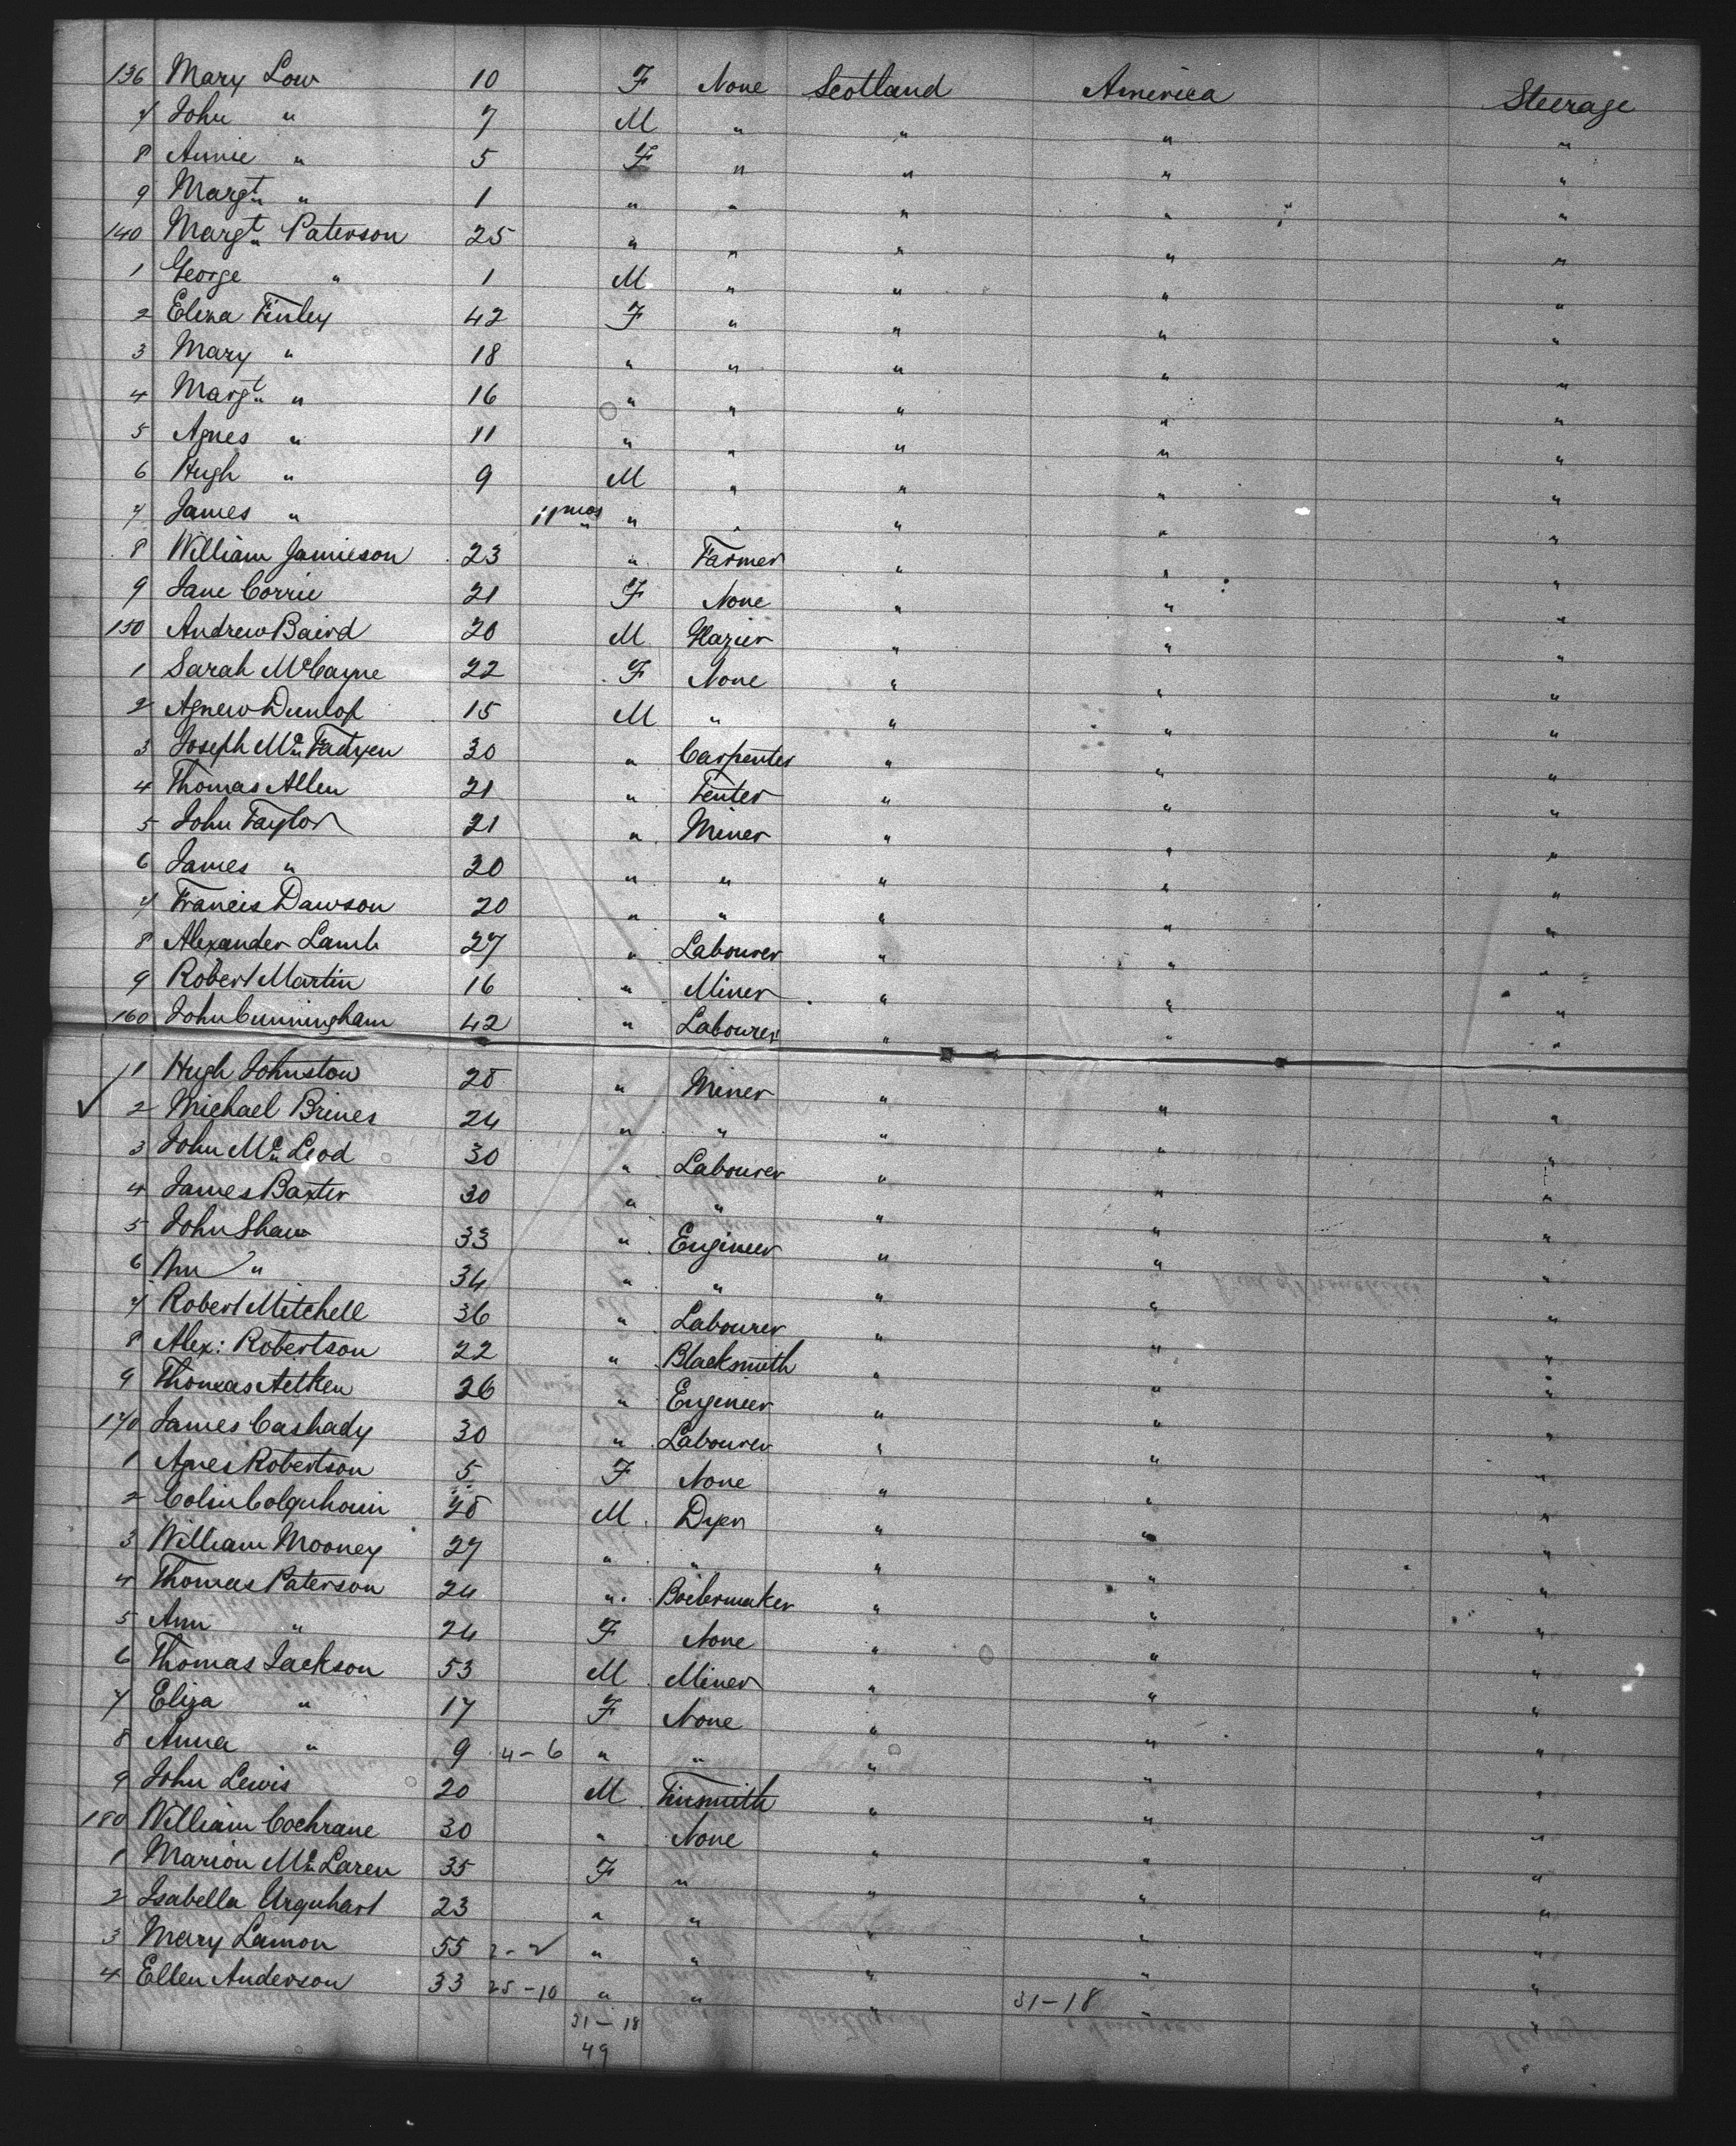 136 Mary Low 10 F None Scotland America Steerage
7 John " 7 M " " " "
8 Annie " 5 F " " " "
9 Margt " 1 " " " " "
140 Margt Paterson 25 " " " " "
1 George " 1 M " " " "
2 Eliza Finley 42 F " " " "
3 Mary " 18 " " " " "
4 Margt " 16 " " " " "
5 Agnes " 11 " " " " "
6 Hugh " 9 M " " " "
7 James " 11 mos " " " " "
8 William Jamieson 23 " Farmer " " "
9 Jane Corrie 21 F None " " "
150 Andrew Baird 20 M Glazier " " "
1 Sarah McCayne 22 F None " " "
2 Agnew Dunlop 15 M " " " "
3 Joseph Mc Fadyen 30 " Carpenter " " "
4 Thomas Allen 21 " Tenter " " "
5 John Taylor 21 " Miner " " "
6 James " 20 " " " " "
7 Francis Dawson 20 " " " " "
8 Alexander Lamb 27 " Labourer " " "
9 Robert Martin 16 " Miner " " "
160 John Cunningham 42 " Labourer " " "
1 Hugh Johnston 28 " Miner " " "
2 Michael Brines 24 " " " " "
3 John Mc Leod 30 " Labourer " " "
4 James Baxter 30 " " " " "
5 John Shaw 33 " Engineer " " "
6 Wm " 34 " " " " "
7 Robert Mitchell 36 " Labourer " " "
8 Alex: Robertson 22 " Blacksmith " " "
9 Thomas Aitken 26 " Engineer " " "
170 James Cashady 30 " Labourer " " "
1 Agnes Robertson 5 F None " " "
2 Colin Colquhoun M Dyer " " "
3 William Mooney 27 " " " " "
4 Thomas Paterson 24 " Boilermaker " " "
5 Ann " 24 F None " " "
6 Thomas Jackson 53 M Miner " " "
7 Eliza " 17 F None " " "
8 Anna " 9 4-6 " " " " "
9 John Lewis 20 M Tinsmith " " "
180 William Cochrane 30 " None " " "
1 Marion Mc Laren 35 F " " " "
2 Isabella Urquhart 23 " " " " "
3 Mary Lamon 55 2-2 " " " " "
4 Ellen Anderson 33 25-10 " " " 31-18 " "
31-18
49